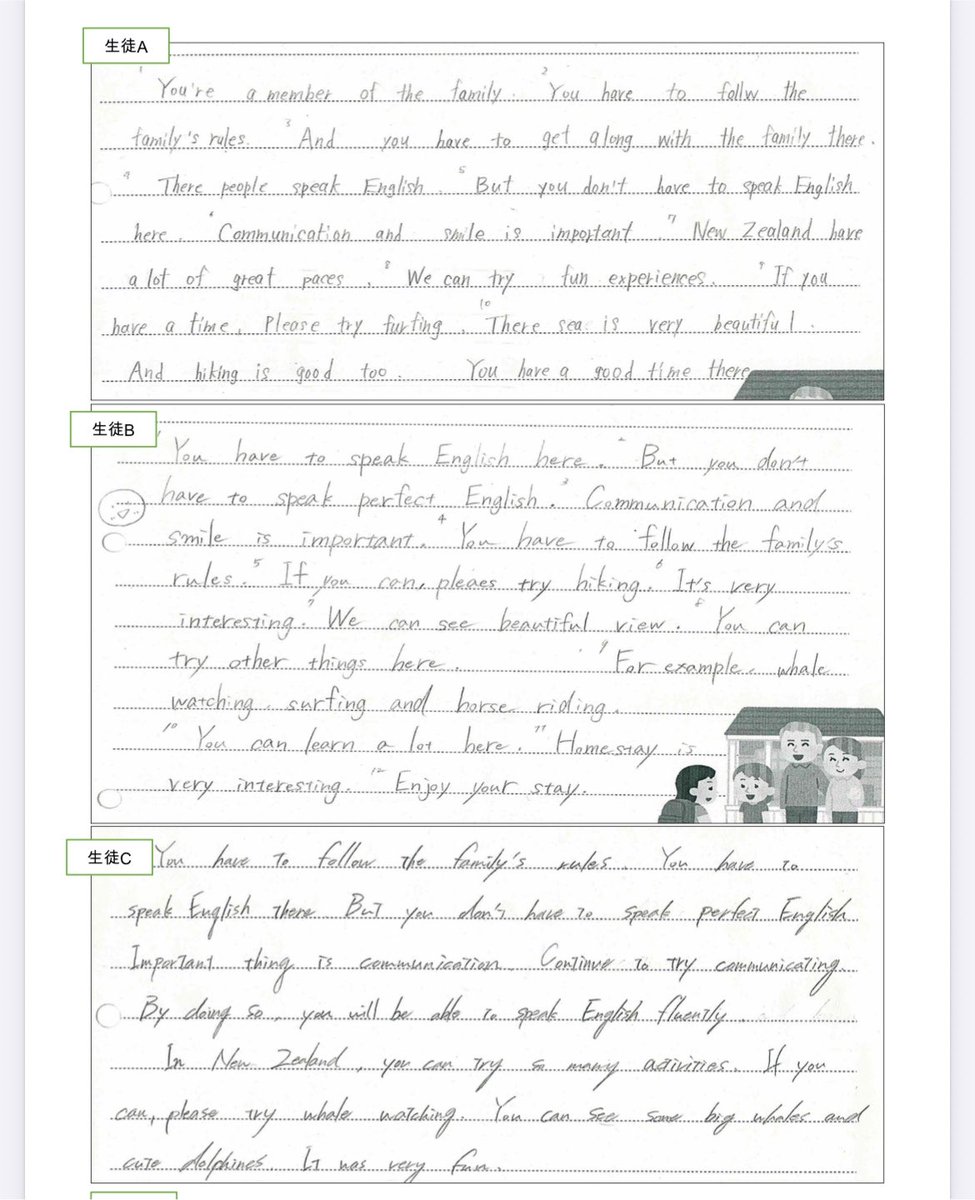 生徒A
1 You're a member of the family. 2 You have to follw the
family's rules. 3 And you have to get along with the family there.
4 There people speak English. 5 But you don't have to speak English
here. 6 Communication and smile is important. 7 New Zealand have
a lot of great paces. 8 We can try fun experiences. 9 If you
have a time, Please try furfing. 10 There sea is very beautiful.
And hiking is good too. You have a good time there
生徒B
You have to speak English here. 2 But you don't
have to speak perfect English. 3 Communication and
smile is important. 4 You have to follow the family's
rules. 5 If you can, pleaes try hiking. 6 It's very
interesting. 7 We can see beautiful view. 8 You can
try other things here. 9 For example. whale
watching. surfing and horse riding.
10 You can learn a lot here. 11 Homestay is
very interesting. 12 Enjoy your stay.
生徒C
You have to follow the family's rules. You have to
speak English there. But you don't have to speak perfect English
Important thing is communication. Continue to try communicating.
By doing so, you will be able to speak English fluently.
In New Zealand, you can try so many activities. If you
can, please try whale watching. You can see some big whales and
cute dolphines. It was very fun.